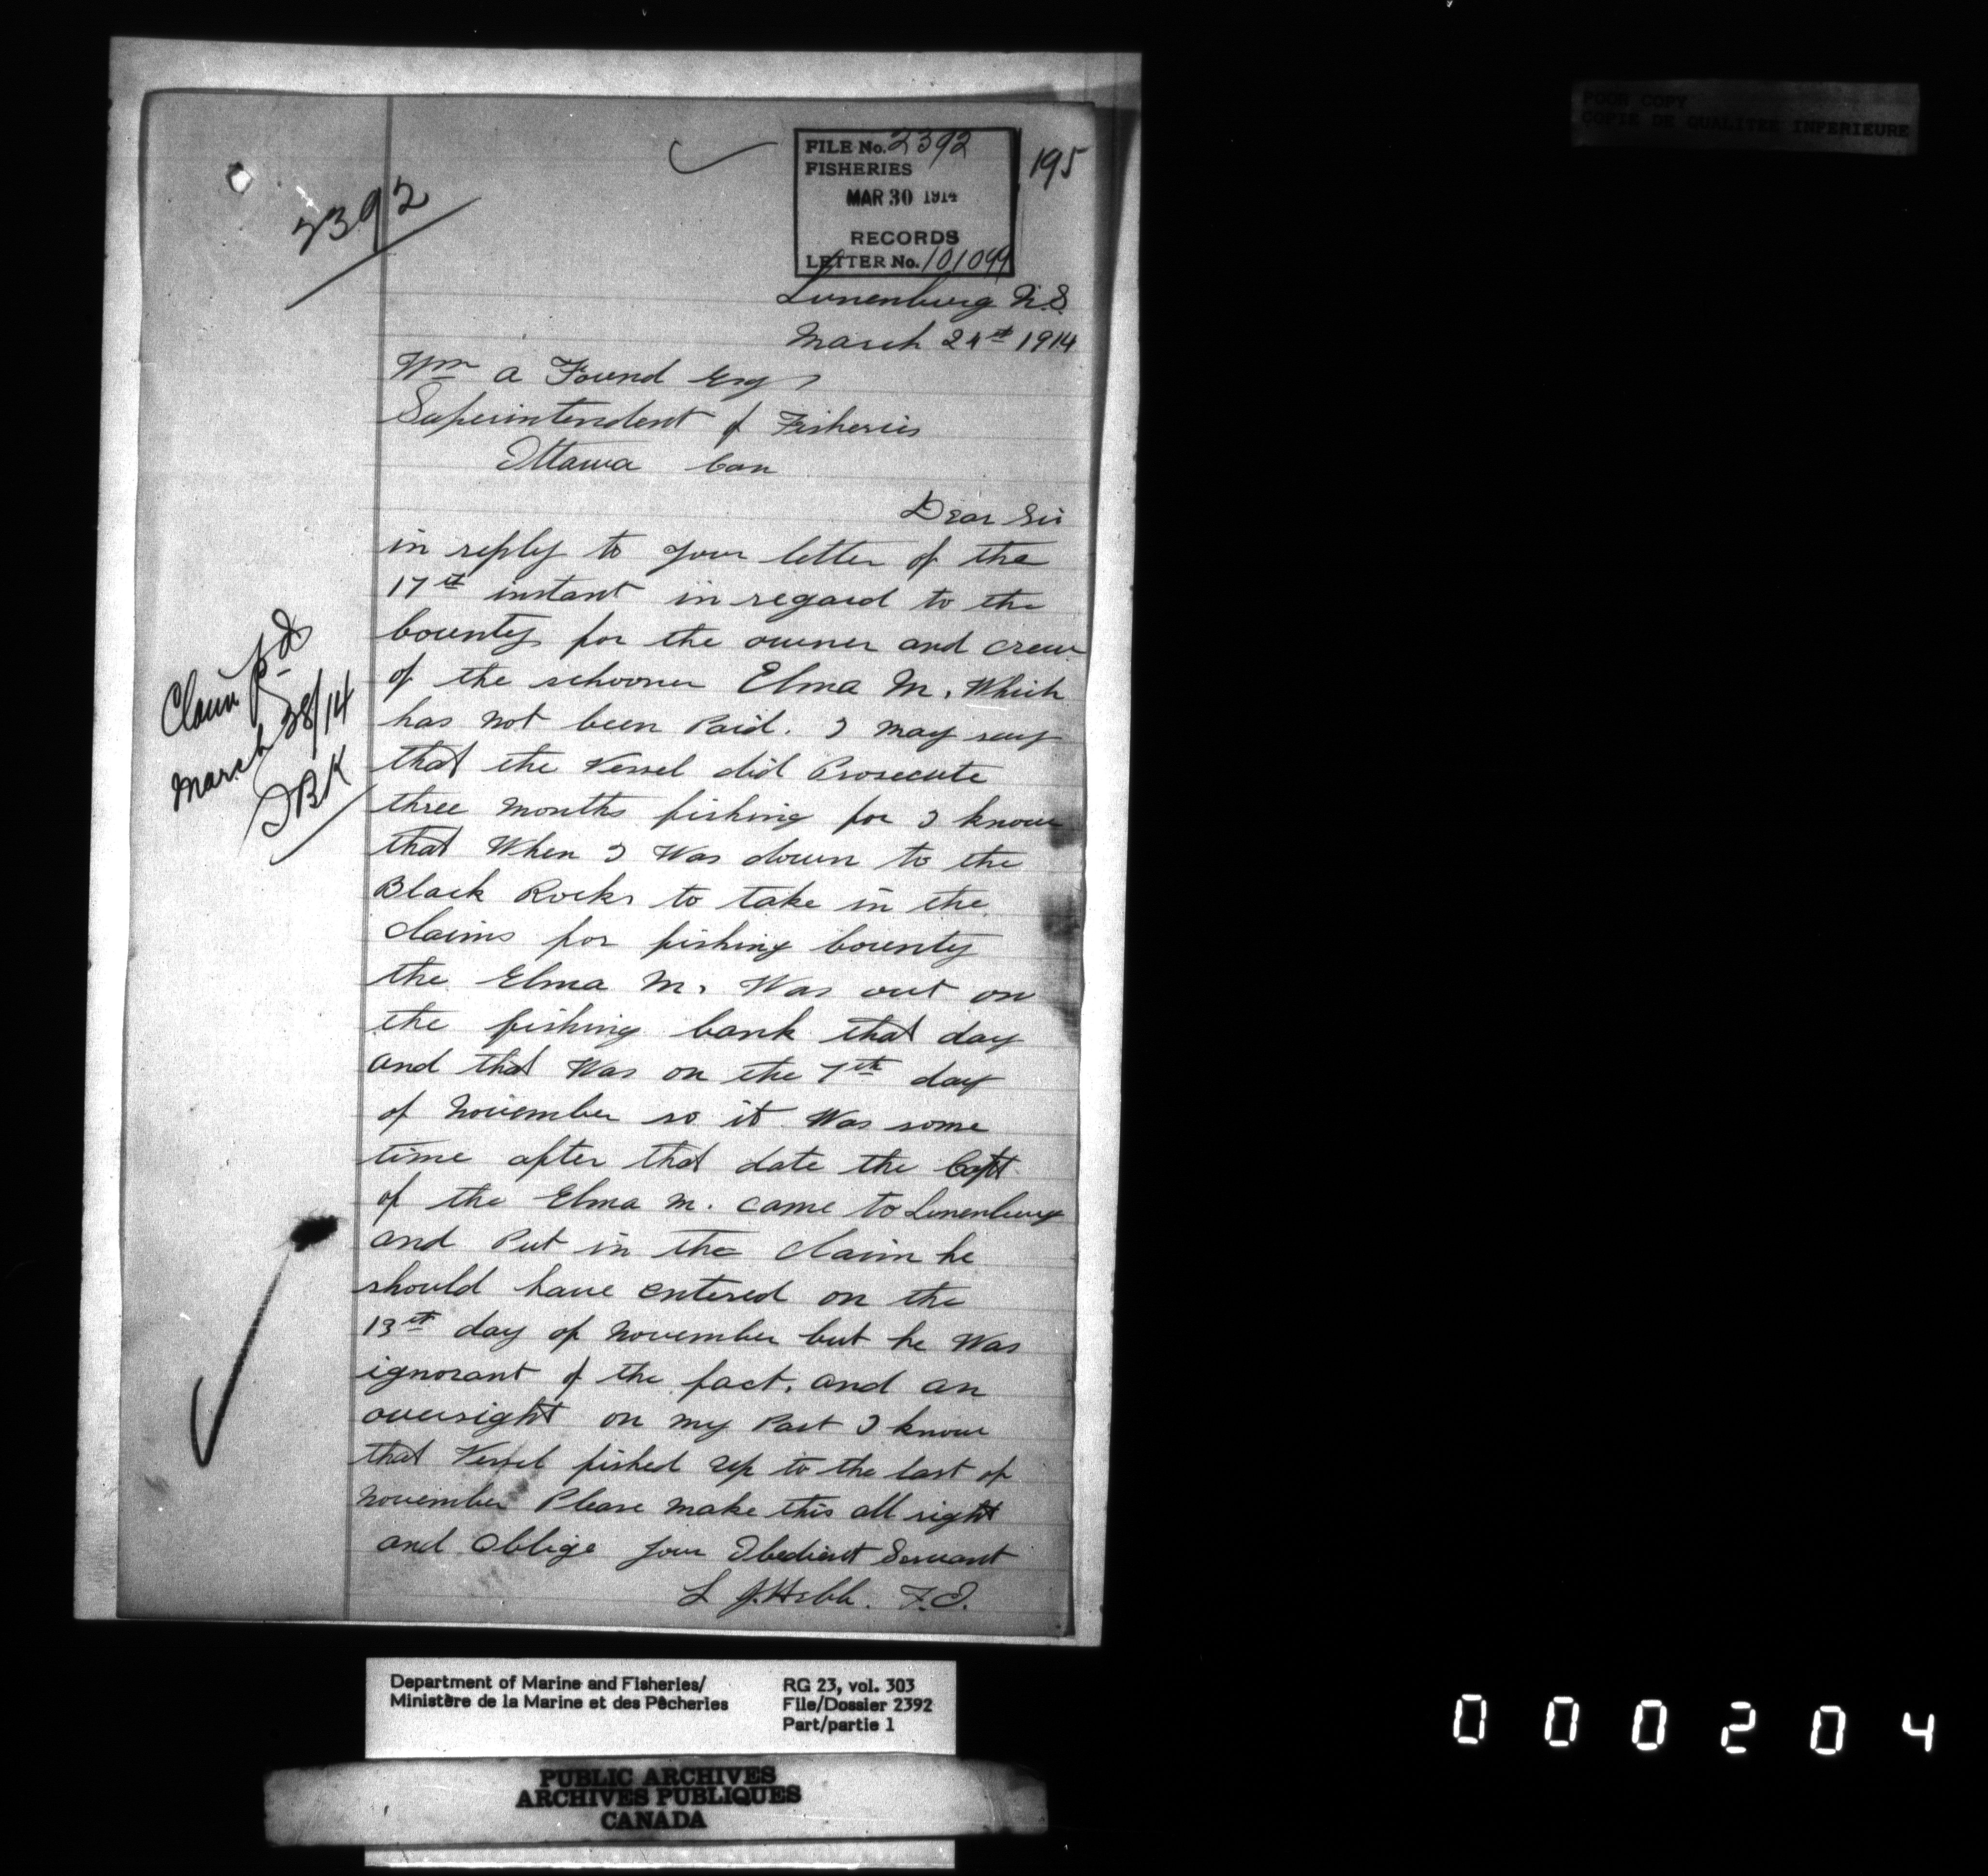 POOR COPY
COPIE DE QUALITEE INFERIEURE
FILE No. 2392
FISHERIES
MAR 30 1914
RECORDS
LETTER No. 101099
195
2392
Lunenburg N.S.
March 24th 1914
Wm a Found Esq
Superintendent of Fisheries
Ottawa Can
Dear Sir
in reply to your letter of the
17th instant in regard to the
bounty for the owner and crew
of the schooner Elma M. Which
has not been Paid. I may say
that the Vessel did Prosecute
three months fishing for I know
that When I Was down to the
Black Rocks to take in the
claims for fishing bounty
the Elma M. Was out on
the fishing bank that day
and that Was on the 7th day
of November so it Was some
time after that date the Capt
of the Elma M. came to Lunenburg
and Put in the claim he
should have entered on the
13th day of November but he Was
ignorant of the fact. and an
oversight on my Part I know
that Vessel fished up to the last of
November Please make this all right
and Oblige your Obedient Servant
L J. Hebb. F.O.
Claim pd
March 28/14
JBK
Department of Marine and Fisheries/
Ministère de la Marine et des Pêcheries
RG 23, vol. 303
File/Dossier 2392
Part/partie 1
PUBLIC ARCHIVES
ARCHIVES PUBLIQUES
CANADA
000204